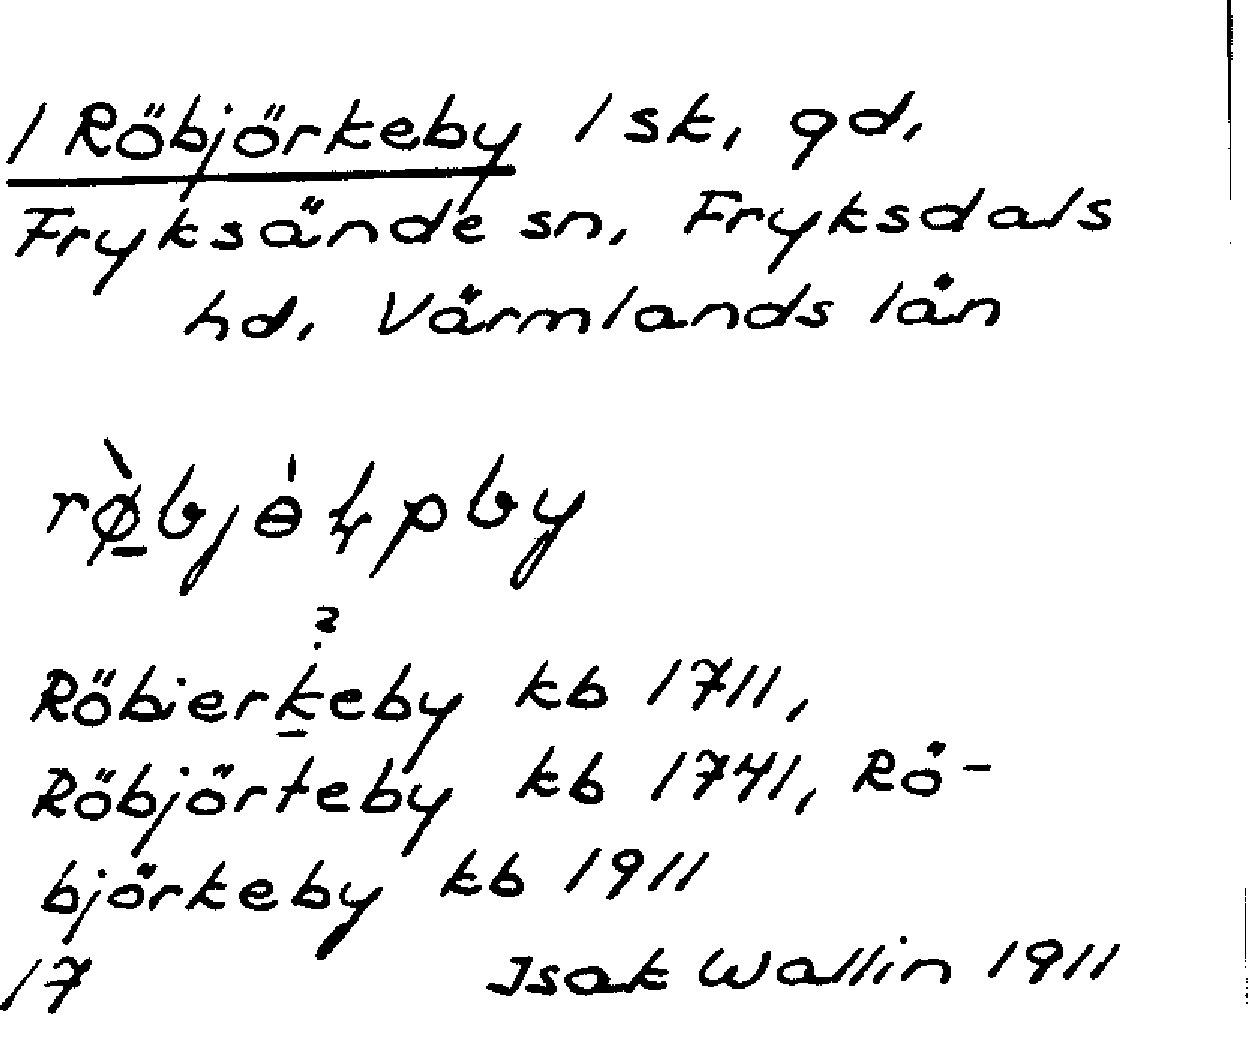 1 Röbjörkeby 1 sk, gd,
Fryksände sn, Fryksdals
hd, Värmlands län
?
Röbierkeby kb 1711,
Röbjörteby kb 1741, Rö-
björkeby kb 1911
17 Isak Wallin 1911